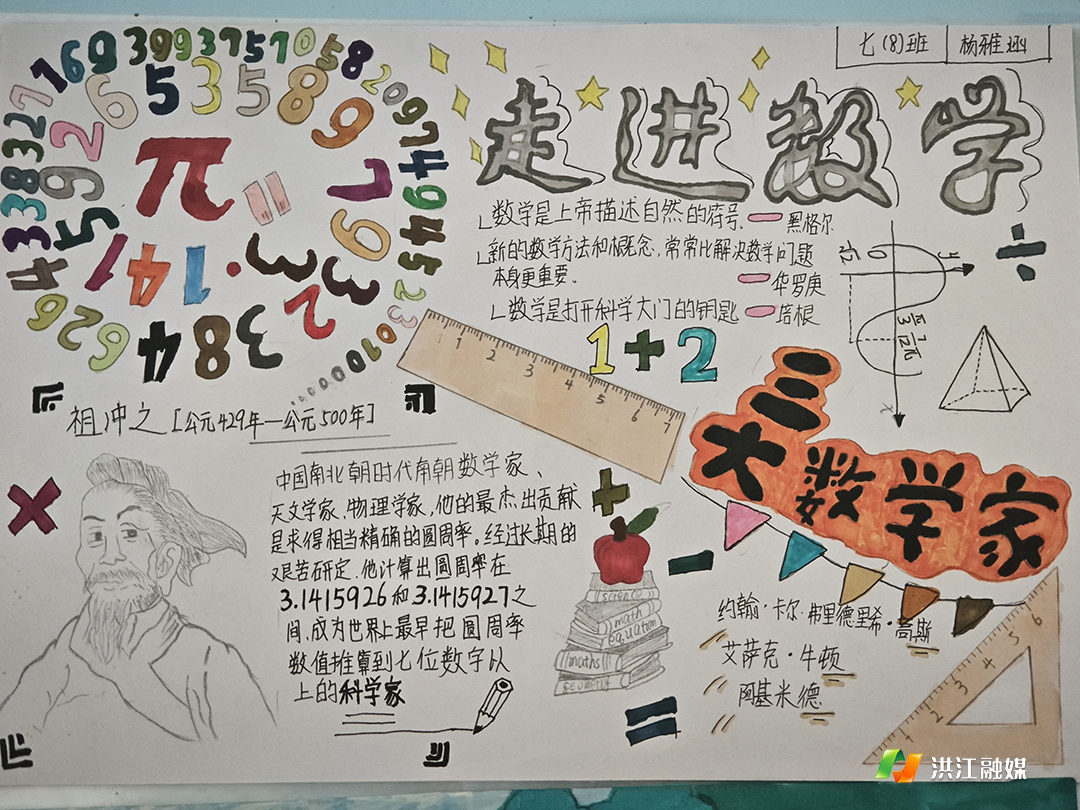 七(8)班 杨雅涵
走进数学
数学是上帝描述自然的符号 — 黑格尔
新的数学方法和概念,常常比解决数学问题
本身更重要。 — 华罗庚
数学是打开科学大门的钥匙 — 培根
1+2
π
祖冲之[公元429年—公元500年]
中国南北朝时代南朝数学家、
天文学家、物理学家,他的最杰出贡献
是求得相当精确的圆周率。经过长期的
艰苦研定,他计算出圆周率在
3.1415926和3.1415927之
间,成为世界上最早把圆周率
数值推算到七位数字以
上的科学家
三大数学家
约翰·卡尔·弗里德里希·高斯
艾萨克·牛顿
阿基米德
science
math
equation
maths
geometry
1 2 3 4 5 6 7
2 3 4 5 6
洪江融媒